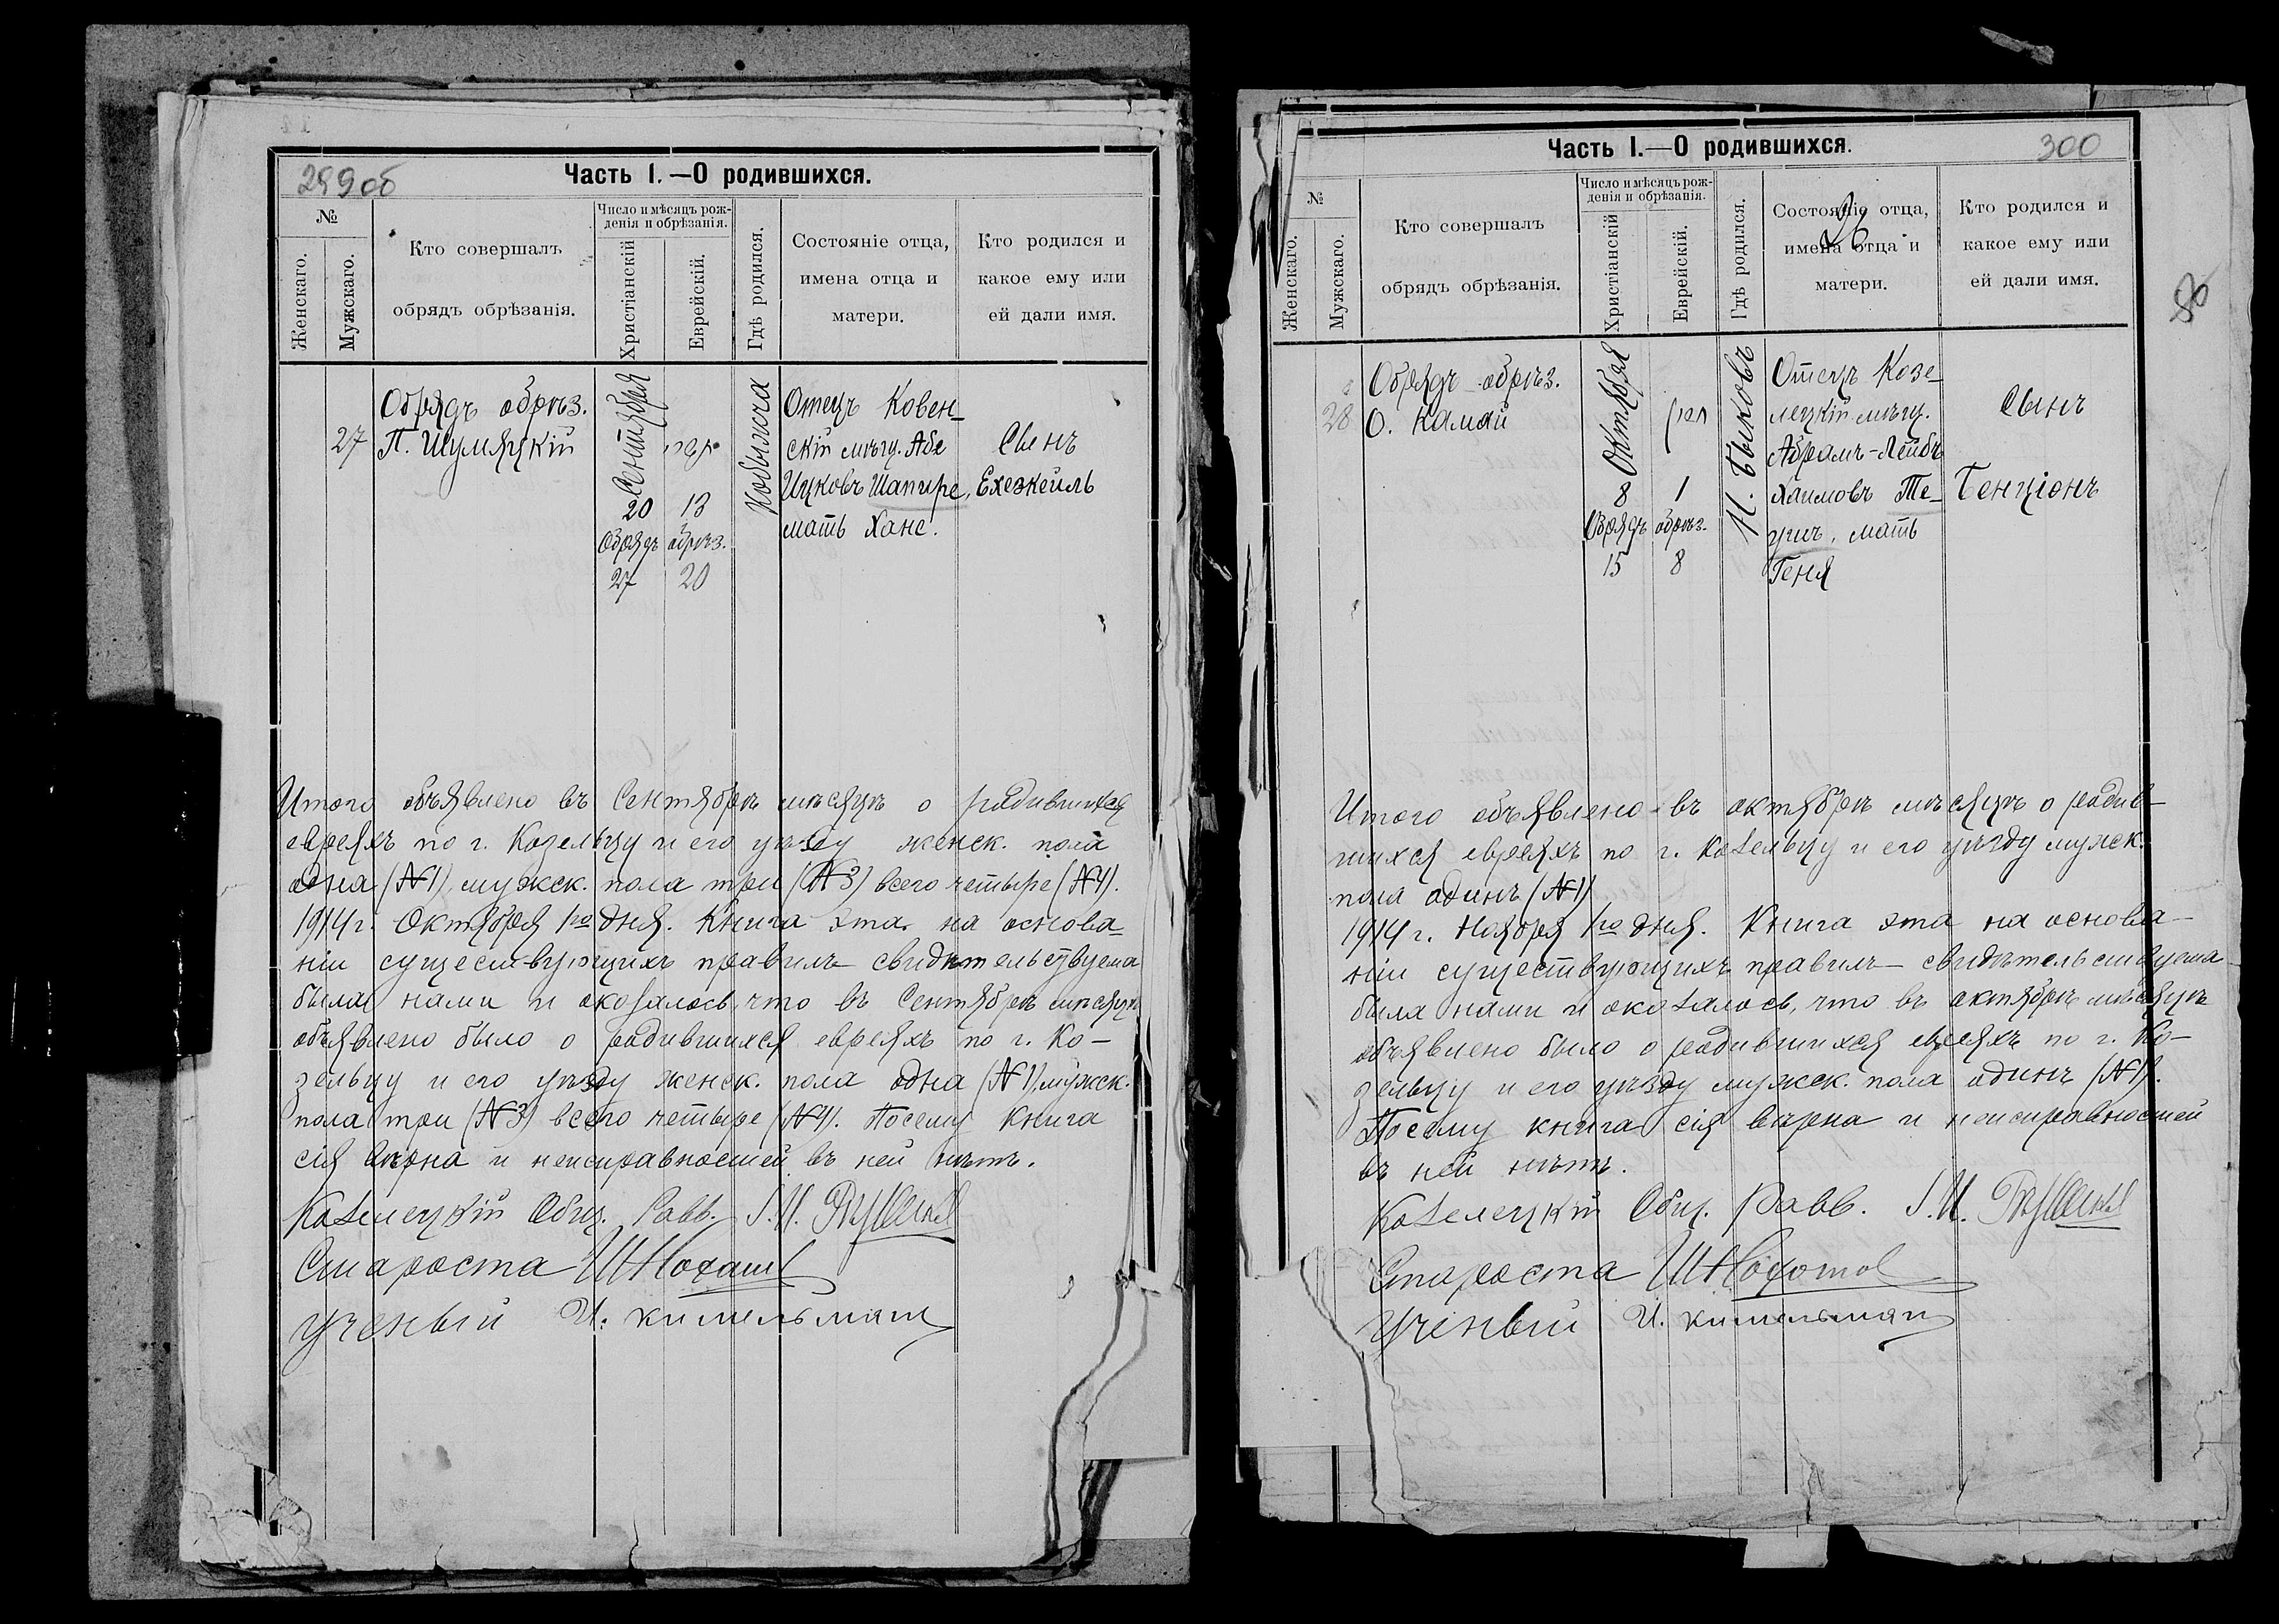 299 об
Часть I. — О родившихся.
№
Женскаго.
Мужскаго.
Кто совершалъ
обрядъ обрѣзанія.
Число и мѣсяцъ рож-
денія и обрѣзанія.
Христіанскій
Еврейскій.
Гдѣ родился.
Состояніе отца,
имена отца и
матери.
Кто родился и
какое ему или
ей дали имя.
27
Обрядъ обрѣз.
П. Шумяцкій
Сентября
20 13
Обрядъ обрѣз.
27 20
Кобыжча
Отецъ Ковен-
скій мѣщ. Абе
Ицковъ Шапире,
мать Хане.
Сынъ
Ехезкеиль
Итого объявлено въ Сентябрѣ мѣсяцѣ о родившихся
евреяхъ по г. Козельцу и его уѣзду женск. пола
одна (№1), мужск. пола три (№3) всего четыре (№4).
1914 г. Октября 1го дня. Книга эта на основа-
ніи существующихъ правилъ свидѣтельствуема
была нами и оказалось, что въ Сентябрѣ мѣсяцѣ
объявлено было о родившихся евреяхъ по г. Ко-
зельцу и его уѣзду женск. пола одна (№1), мужск.
пола три (№3) всего четыре (№4). Посему книга
сія вѣрна и неисправностей въ ней нѣтъ.
Козелецкій Общ. Равв.
Староста
Ученый И. Кимельман
300
Часть I.—О родившихся.
№
Женскаго.
Мужскаго.
Кто совершалъ
обрядъ обрѣзанія.
Число и мѣсяцъ рож-
денія и обрѣзанія.
Христіанскій
Еврейскій.
Гдѣ родился.
Состояніе отца,
имена отца и
матери.
Кто родился и
какое ему или
ей дали имя.
28
Обрядъ обрѣз.
О. Камай
Октября
8 1
Обрядъ обрѣз.
15 8
Н. Быковъ
Отецъ Козе-
лецкій мѣщ.
Абрамъ-Лейбъ
Хаимовъ Те-
мать
Геня
Сынъ
Бенціонъ
Итого объявлено въ октябрѣ мѣсяцѣ о родив-
шихся евреяхъ по г. Козельцу и его уѣзду мужск.
пола одинъ (№1)
1914 г. Ноября 1го дня. Книга эта на основа-
ніи существующихъ правилъ свидѣтельствуема
была нами и оказалось, что въ октябрѣ мѣсяцѣ
объявлено было о родившихся евреяхъ по г. Ко-
зельцу и его уѣзду мужск. пола одинъ (№1).
Посему книга сія вѣрна и неисправностей
въ ней нѣтъ.
Козелецкій Общ. Равв.
Староста
Ученый И. Кимельман